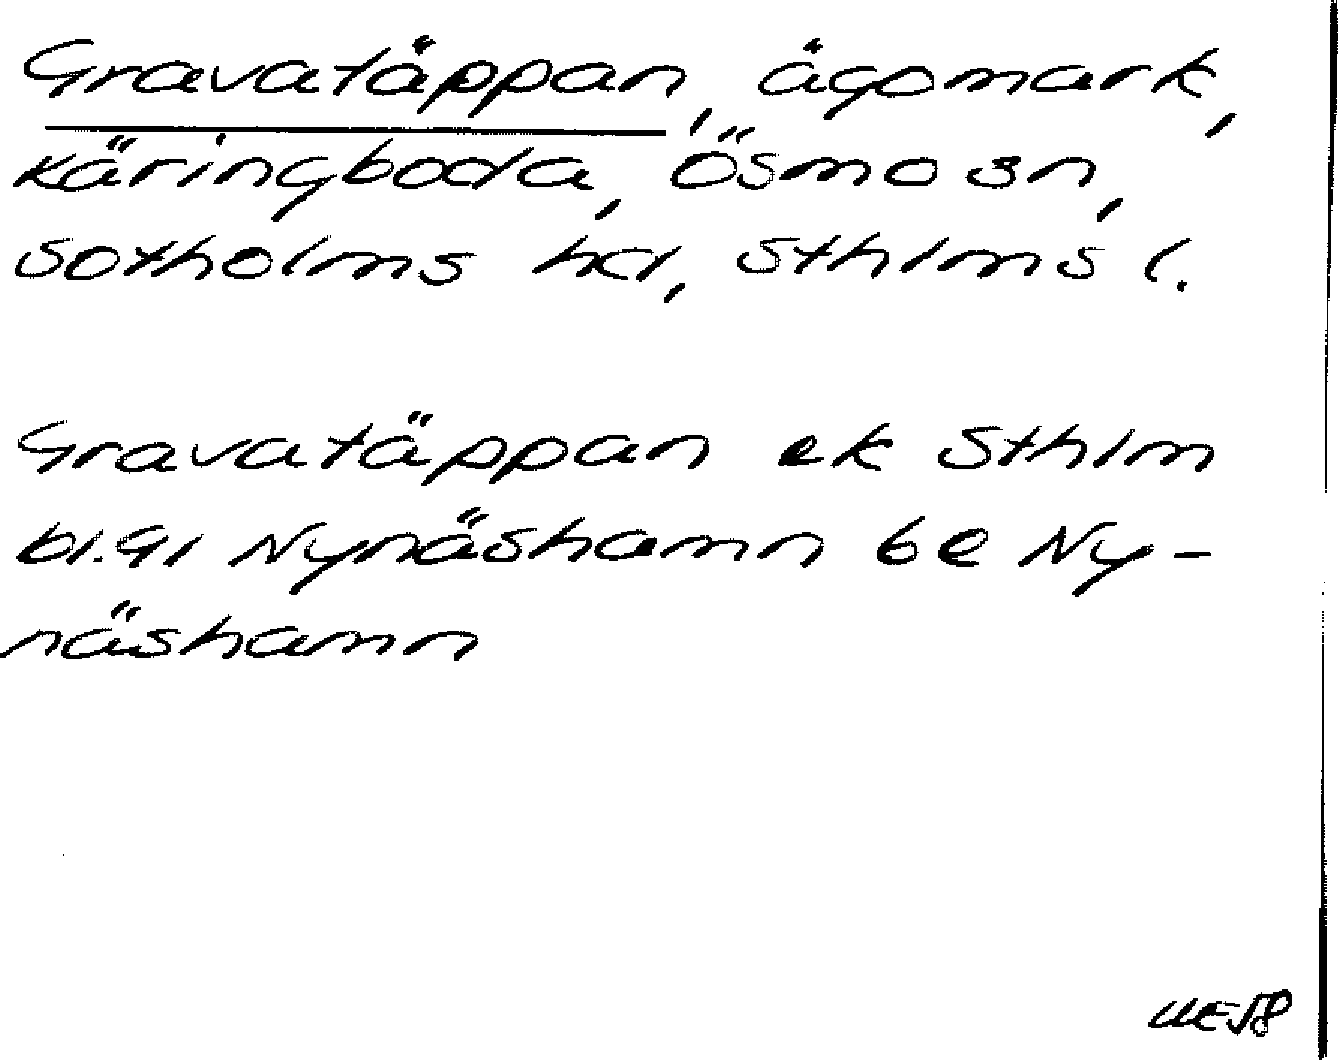 Gravatäppan, ägomark,
Käringboda, Ösmo sn,
Sotholms hd, Sthlms l.
Gravatäppan ek Sthlm
bl.91 Nynäshamn be Ny-
näshamn